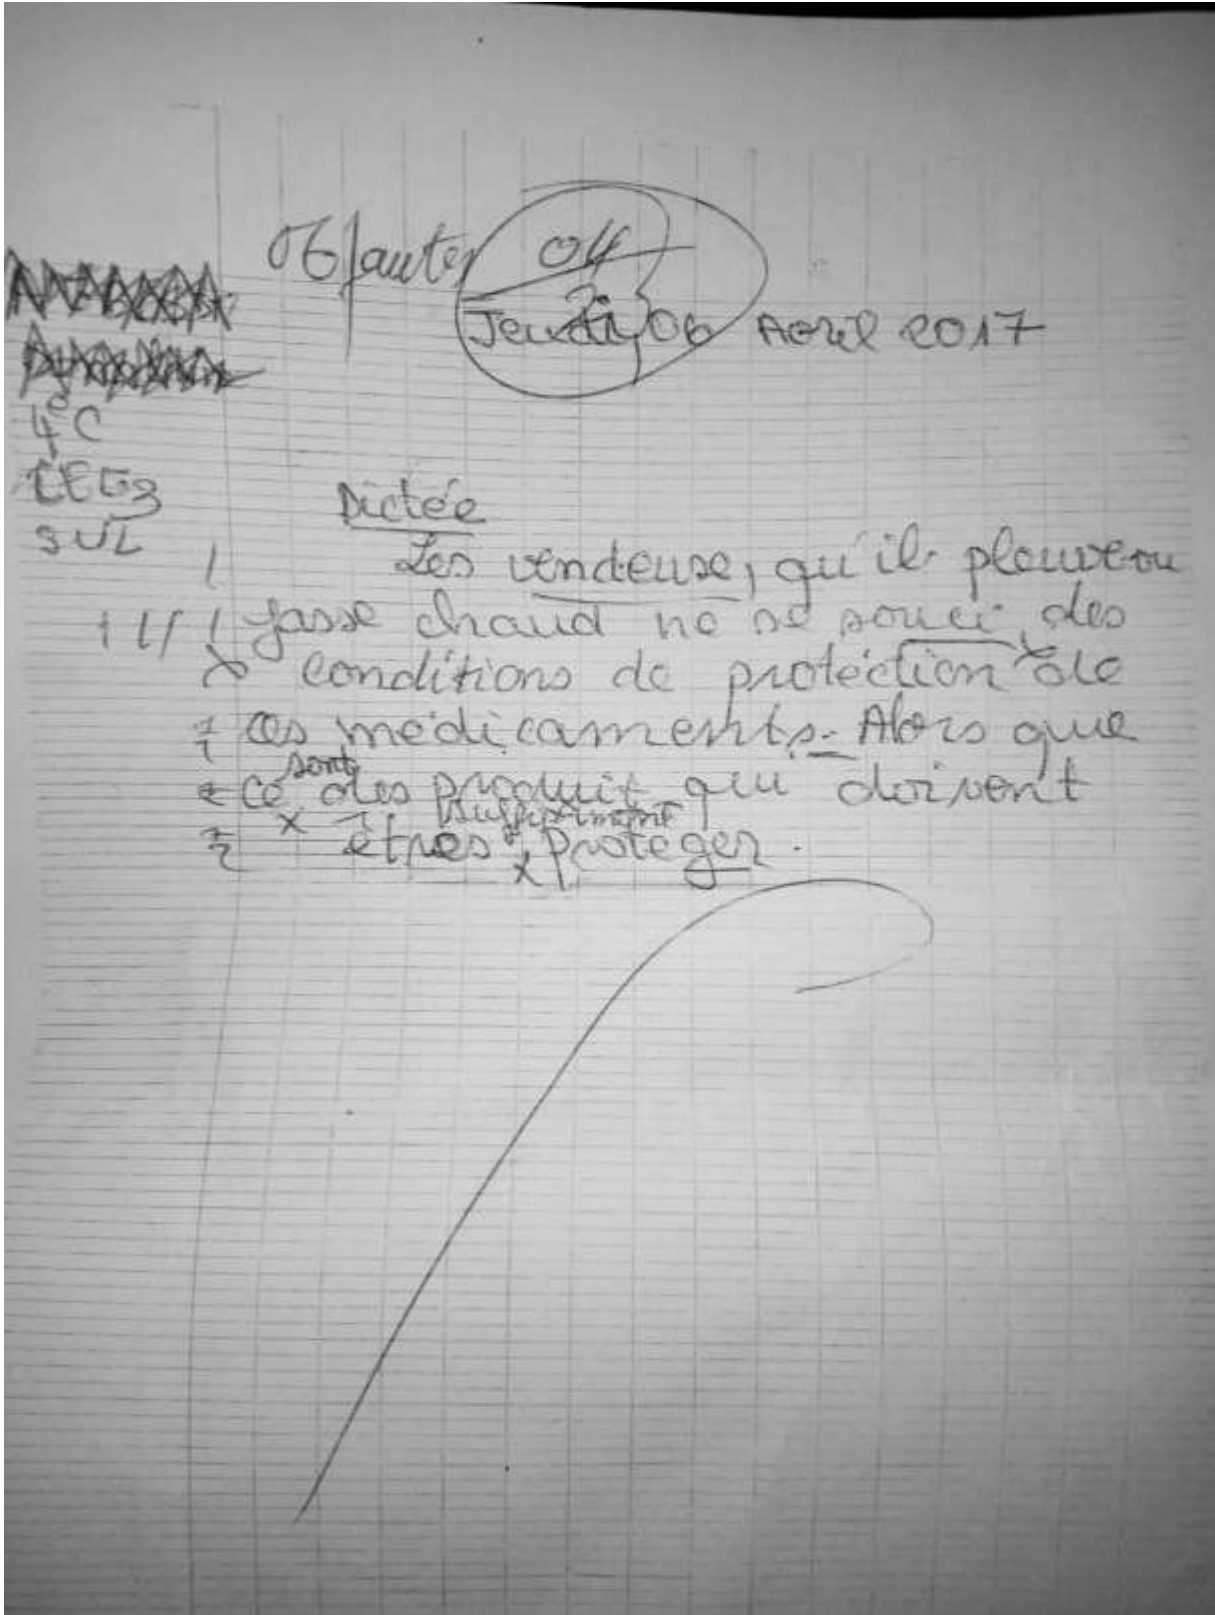 06 fautes
04
Jeudi, 06 Avril 2017
4e C
CEG3
Dictée
Les vendeuse, qu'il pleuve ou
fasse chaud ne se souci des
conditions de protéction de
ces médicaments. Alors que
ce sont des produit qui doivent
êtres protéger.